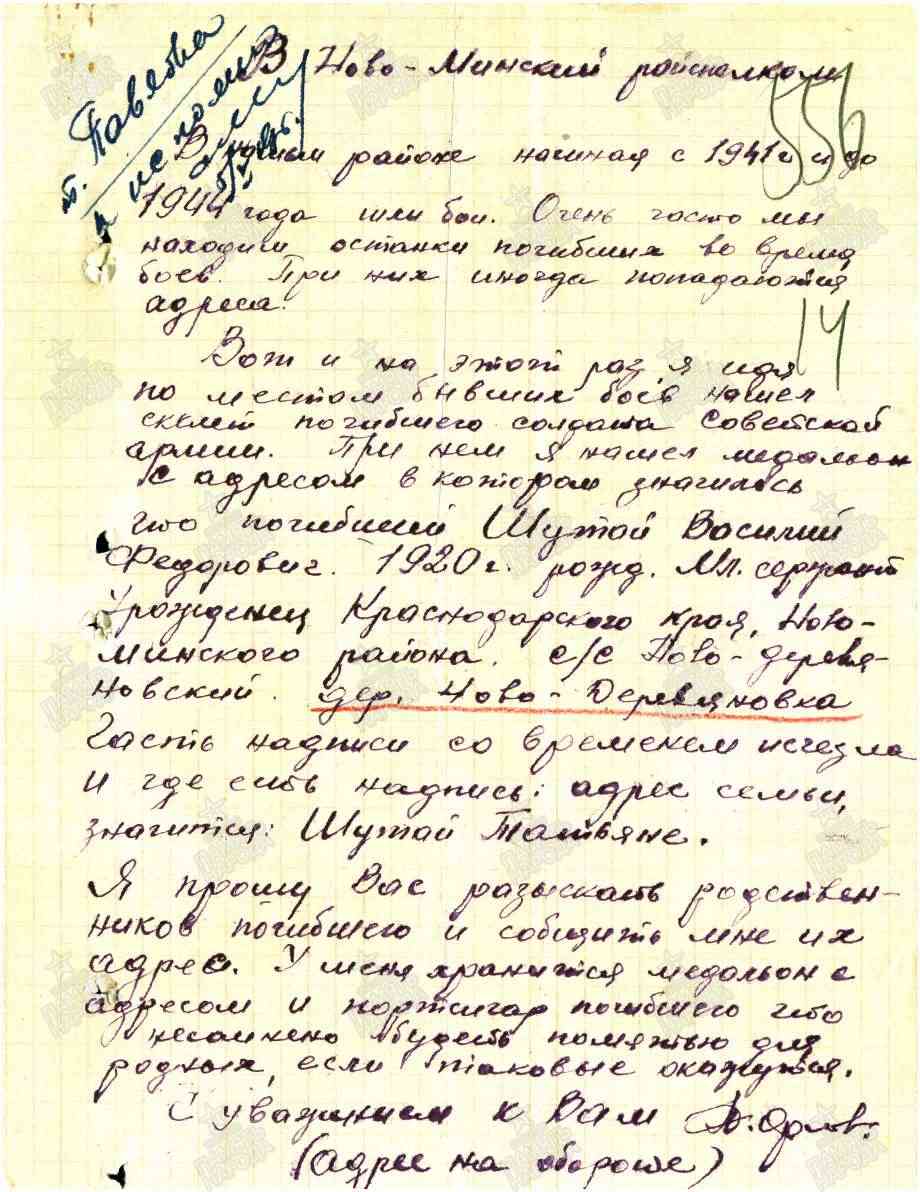 т. Павлова
к исполн
В Ново-Минский райисполком
556
В нашем районе начиная с 1941г и до
1944 года шли бои. Очень часто мы
находили останки погибших во время
боев. При них иногда попадаются
адреса.
14
Вот и на этот раз я идя
по местам бывших боев нашел
скелет погибшего солдата Советской
армии. При нем я нашел медальон
с адресом в котором значилось
что погибший Шутай Василий
Федорович. 1920г. рожд. Мл. сержант
Урожденец Краснодарского края, Ново-
Минского района. с/с Ново-деревя-
новский. дер. Ново-Деревяновка
Часть надписи со временем исчезла
и где есть надпись: адрес семьи,
значится: Шутай Татьяне.
Я прошу Вас разыскать родствен-
ников погибшего и собщить мне их
адрес. У меня хранится медальон с
адресом и портсигар погибшего что
несомнено будеть памятью для
родных, если таковые окажутся.
С уважением к Вам Орлов.
(адрес на обороте)